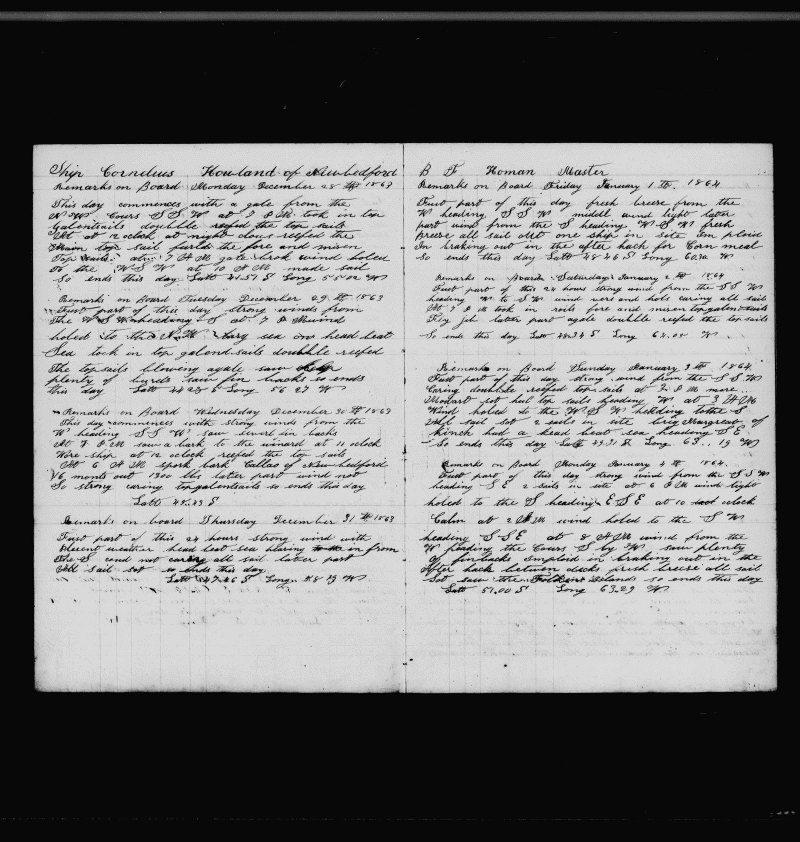 Ship Cornelius Howland of Newbedford
Remarks on Board Monday December 28 th 1863
This day commences with a gale from the
N W Cours S S W at 7 P M took in top
Galentsails doubble reefed the top sails
At at 12 oclock at night clous reefed the
Main top sail furld the fore and misen
Top sails at 7 A M gale brok wind holed
to the W S W at 10 A M made sail
So ends this day Latt 41-57 S Long 55-02 W
Remarks on Board Tuesday December 29 th 1863
First part of this day strong winds from
The heading S at 7 P M wind
holed to the N W sea on head beat
Sea tock in top galond-sails doubble reefed
The topsails blowing agale saw
plenty of burds saw fin backs so ends
this day Latt 44 23 S Long 56 27 W
Remarks on Board Wednesday December 30 th 1863
This day commences with strong winds from the
W heading S S W saw barks
At 7 P M saw a bark to the winard at 11 oclock
Wore ship at 12 oclock reefed the top sails
At 6 A M spork bark Callao of Newbedford
16 monts out 1300 bls later part wind not
So strong caring topgalentsails so ends this day
Latt 45.33 S
Remarks on board Thursday December 31 th 1863
First part of this 24 hours strong wind with
weather head beat sea in from
The S end not caring all sail later part
All sail sot so ends this day
Latt 47-46 S Long 58 29 W
B F Homan Master
Remarks on Board Friday January 1 th. 1864
First part of this day fresh breeze from the
W heading S S W middl wind light later
part wind from the S heading W S W fresh
Breeze all sail ott one ship in site Em ploid
In braking out in the after hach for Corn meal
So ends this day Latt 48 46 S Long 60.30 W
Remarks on Board Saturday January 2 th 1864
First part of this 24 hours strong wind from the S S W
heading W to S W wind and caring all sail
At 7 P M tock in rails fore and misen topgalentsails
Flyg jib later part agale doubble reefed the top sails
So ends this day Latt 48.34 S Long 62.08 W
Remarks on Board Sunday January 3 th 1864.
First part of this day strong wind from the S S W
Caring doubble reefed top sails at 7 P M more
Modart sot hul top sails heading W at 3 A M
Wind holed to the W S W heading to the S
All sail sot 2 sails in site brig Margreat of
had a head beat sea heading S E
So ends this day Latt 49.31 S Long 63.. 19 W
Remarks on Board Monday January 4 th 1864.
First part of this day strong wind from the S S W
heading S E 2 sails in site at 6 P M wind light
holed to the S heading E S E at 10 oclock
Calm at 2 A M wind holed to the S W
heading S S E at 8 A M wind from the
W heading the Cours S by W saw plenty
of finbacks Imploid in braking out in the
After hach betwen decks fresh breeze all sail
Sot saw the Folkland Islands so ends this day
Latt 51.00 S Long 63-29 W